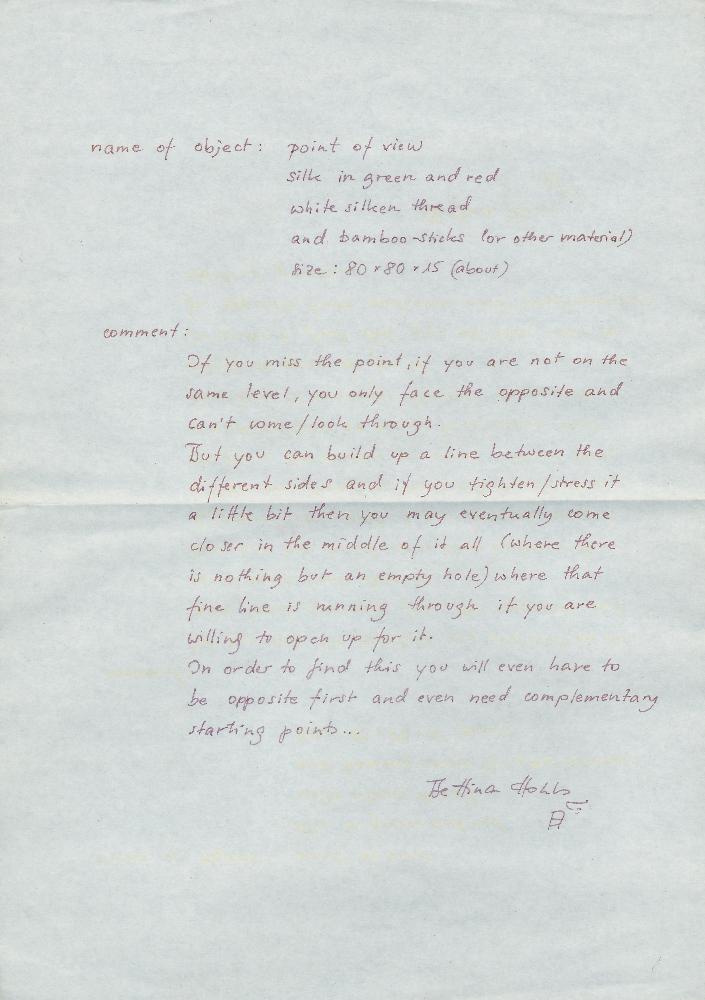 name of object: point of view
silk in green and red
white silken thread
and bamboo-sticks (or other material)
size: 80 x 80 x 15 (about)
comment:
If you miss the point, if you are not on the
same level, you only face the opposite and
can't come/look through.
But you can build up a line between the
different sides and if you tighten/stress it
a little bit then you may eventually come
closer in the middle of it all (where there
is nothing but an empty hole) where that
fine line is running through if you are
willing to open up for it.
In order to find this you will even have to
be opposite first and even need complementary
starting points...
Bettina